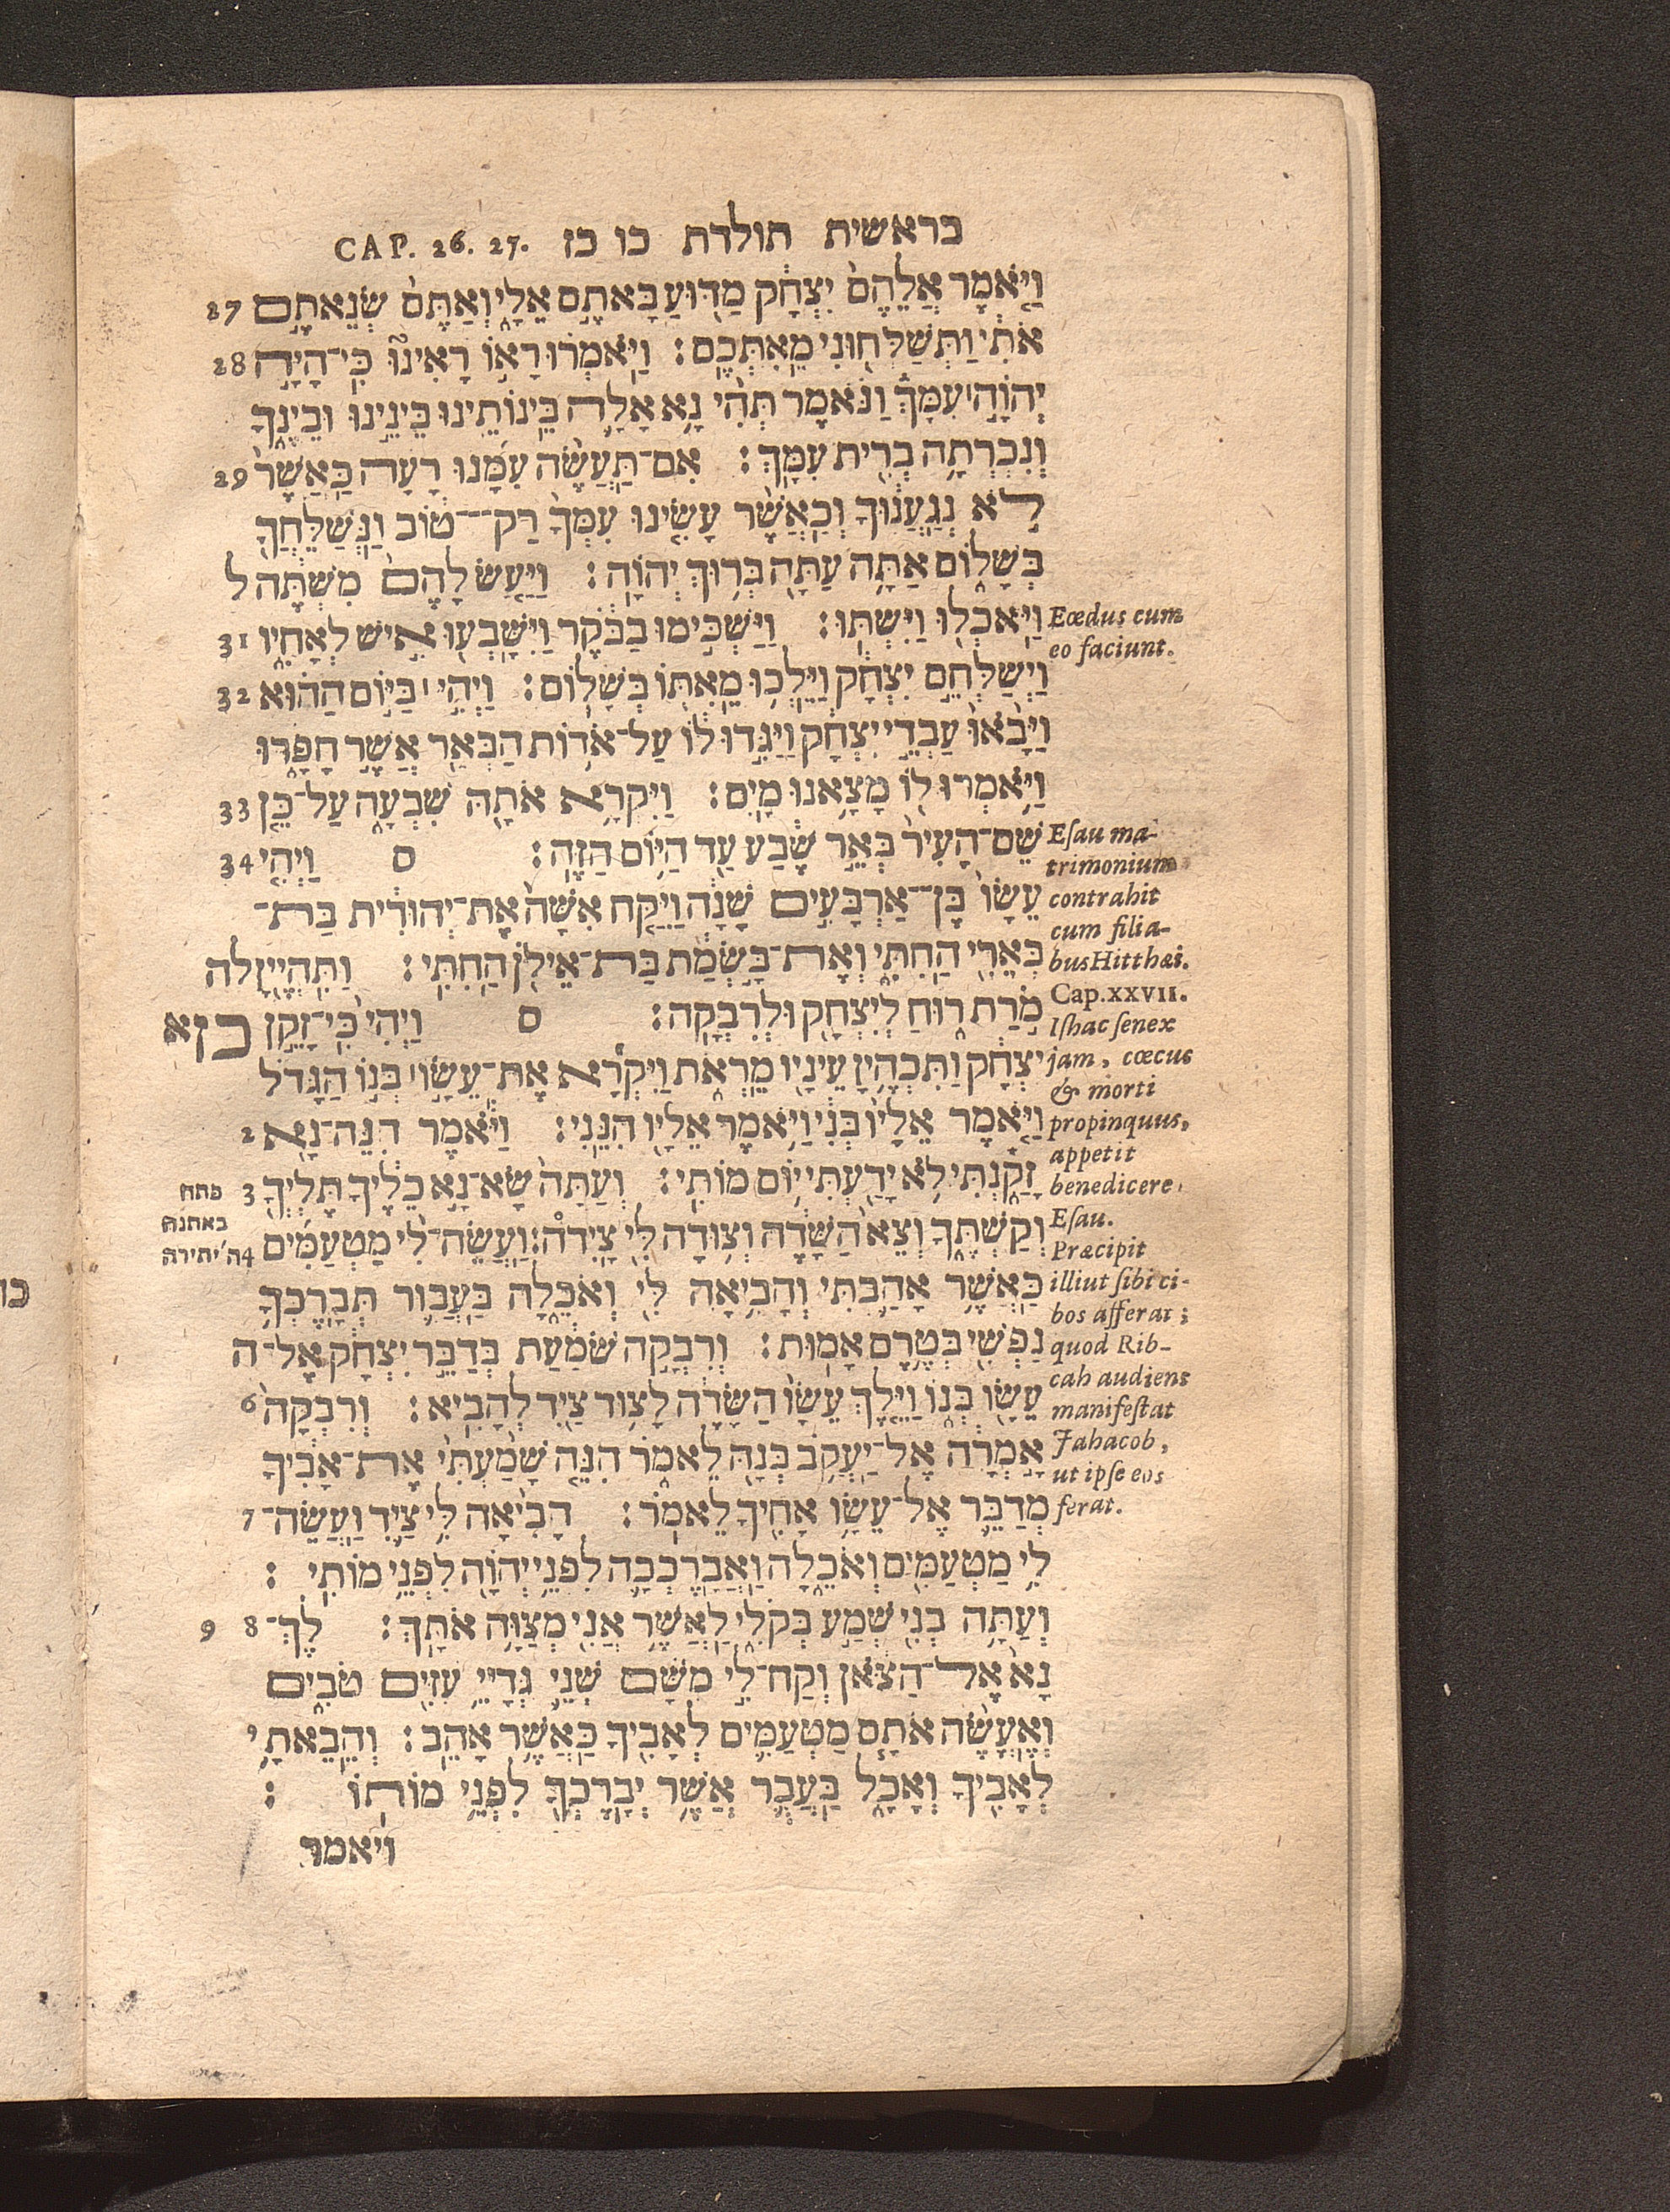 CAP. 26. 27. בראשית תולדת כו כז
וַיֹּאמֶר אֲלֵהֶם יִצְחָק מַדּוּעַ בָּאתֶם אֵלָי וְאַתֶּם שְׂנֵאתֶם 27
אֹתִי וַתְּשַׁלְּחוּנִי מֵאִתְּכֶם׃ וַיֹּאמְרוּ רָאוֹ רָאִינוּ כִּי־הָיָה 28
יְהוָה עִמָּךְ וַנֹּאמֶר תְּהִי נָא אָלָה בֵּינוֹתֵינוּ בֵּינֵינוּ וּבֵינֶךָ
וְנִכְרְתָה בְרִית עִמָּךְ׃ אִם־תַּעֲשֵׂה עִמָּנוּ רָעָה כַּאֲשֶׁר 29
לֹא נְגַעֲנוּךָ וְכַאֲשֶׁר עָשִׂינוּ עִמְּךָ רַק־טוֹב וַנְּשַׁלֵּחֲךָ
בְּשָׁלוֹם אַתָּה עַתָּה בְּרוּךְ יְהוָה׃ וַיַּעַשׂ לָהֶם מִשְׁתֶּה ל
וַיֹּאכְלוּ וַיִּשְׁתּוּ׃ וַיַּשְׁכִּימוּ בַבֹּקֶר וַיִּשָּׁבְעוּ אִישׁ לְאָחִיו 31
וַיְשַׁלְּחֵם יִצְחָק וַיֵּלְכוּ מֵאִתּוֹ בְּשָׁלוֹם׃ וַיְהִי בַּיּוֹם הַהוּא 32
וַיָּבֹאוּ עַבְדֵי יִצְחָק וַיַּגִּדוּ לוֹ עַל־אֹדוֹת הַבְּאֵר אֲשֶׁר חָפָרוּ
וַיֹּאמְרוּ לוֹ מָצָאנוּ מָיִם׃ וַיִּקְרָא אֹתָהּ שִׁבְעָה עַל־כֵּן 33
שֵׁם־הָעִיר בְּאֵר שֶׁבַע עַד הַיּוֹם הַזֶּה׃ ס וַיְהִי 34
עֵשָׂו בֶּן־אַרְבָּעִים שָׁנָה וַיִּקַּח אִשָּׁה אֶת־יְהוּדִית בַּת־
בְּאֵרִי הַחִתִּי וְאֶת־בָּשְׂמַת בַּת־אֵילֹן הַחִתִּי׃ וַתִּהְיֶיןָ לה
מֹרַת רוּחַ לְיִצְחָק וּלְרִבְקָה׃ ס וַיְהִי כִּי־זָקֵן כז א
יִצְחָק וַתִּכְהֶיןָ עֵינָיו מֵרְאֹת וַיִּקְרָא אֶת־עֵשָׂו בְּנוֹ הַגָּדֹל
וַיֹּאמֶר אֵלָיו בְּנִי וַיֹּאמֶר אֵלָיו הִנֵּנִי׃ וַיֹּאמֶר הִנֵּה־נָא 2
זָקַנְתִּי לֹא יָדַעְתִּי יוֹם מוֹתִי׃ וְעַתָּה שָׂא־נָא כֵלֶיךָ תֶּלְיְךָ 3
וְקַשְׁתֶּךָ וְצֵא הַשָּׂדֶה וְצוּדָה לִּי צֵידִה׃ וַעֲשֵׂה־לִי מַטְעַמִּים 4
כַּאֲשֶׁר אָהַבְתִּי וְהָבִיאָה לִּי וְאֹכֵלָה בַּעֲבוּר תְּבָרֶכְךָ
נַפְשִׁי בְּטֶרֶם אָמוּת׃ וְרִבְקָה שֹׁמַעַת בְּדַבֵּר יִצְחָק אֶל־ ה
עֵשָׂו בְּנוֹ וַיֵּלֶךְ עֵשָׂו הַשָּׂדֶה לָצוּד צַיִד לְהָבִיא׃ וְרִבְקָה 6
אָמְרָה אֶל־יַעֲקֹב בְּנָהּ לֵאמֹר הִנֵּה שָׁמַעְתִּי אֶת־אָבִיךָ
מְדַבֵּר אֶל־עֵשָׂו אָחִיךָ לֵאמֹר׃ הָבִיאָה לִּי צַיִד וַעֲשֵׂה־ 7
לִי מַטְעַמִּים וְאֹכֵלָה וַאֲבָרֶכְכָה לִפְנֵי יְהוָה לִפְנֵי מוֹתִי׃
וְעַתָּה בְנִי שְׁמַע בְּקֹלִי לַאֲשֶׁר אֲנִי מְצַוָּה אֹתָךְ׃ לֶךְ־ 8 9
נָא אֶל־הַצֹּאן וְקַח־לִי מִשָּׁם שְׁנֵי גְּדָיֵי עִזִּים טֹבִים
וְאֶעֱשֶׂה אֹתָם מַטְעַמִּים לְאָבִיךָ כַּאֲשֶׁר אָהֵב׃ וְהֵבֵאתָ י
לְאָבִיךָ וְאָכָל בַּעֲבֻר אֲשֶׁר יְבָרֶכְךָ לִפְנֵי מוֹתוֹ׃
ויאמר
Eœdus cum
eo faciunt.
Eſau ma-
trimonium
contrahit
cum filia-
bus Hitthæi.
Cap. XXVII.
Iſhac ſenex
jam, cœcus
& morti
propinquus,
appetit
benedicere
Eſau.
Præcipit
illi ut ſibi ci-
bos afferat;
quod Rib-
cah audiens
manifeſtat
Jahacob,
ut ipſe eos
ferat.
פתח
באתנח
ה' יתירה